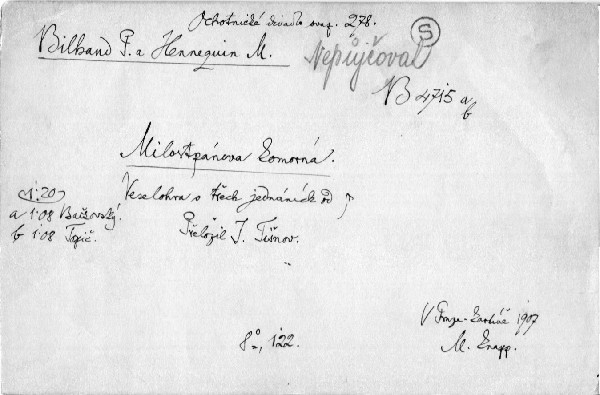 Ochotnické divadlo svaz. 278.
S
Bilhaud P. a Hennequin M.
Nepůjčovat
B 4715 a
b
Milostpánova komorná.
Veselohra o třech jednáních od
1·20
a 1·08
Přeložil J. Tišnov.
b 1·08 Topič.
8°, 122.
V Praze - 1907
M. Knapp.